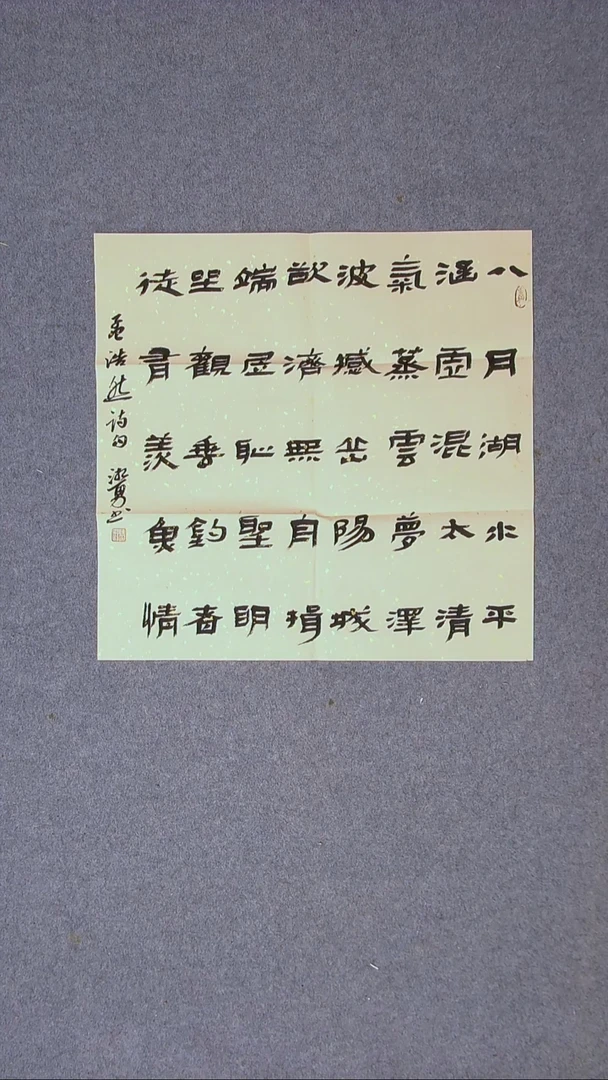 八月湖水平
涵虛混太清
氣蒸雲夢澤
波撼岳陽城
欲濟無舟楫
端居恥聖明
坐觀垂釣者
徒有羨魚情
孟浩然诗句 书